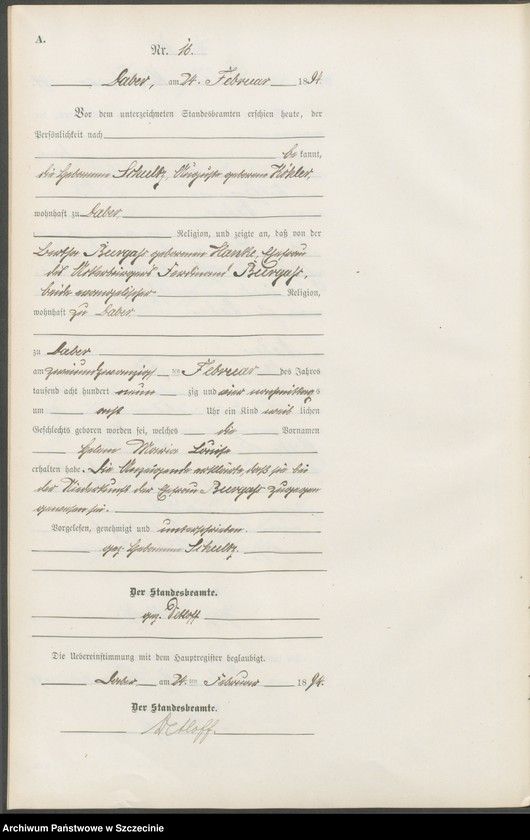 A.
Nr. 16.
Daber, am 24. Februar 1894.
Vor dem unterzeichneten Standesbeamten erschien heute, der
Persönlichkeit nach
bekannt,
die Hebamme Schultz, Auguste geborene Köhler,
wohnhaft zu Daber,
Religion, und zeigte an, daß von der
Bertha Burgaß geborenen Hanke, Ehefrau
des Ackerbürgers Ferdinand Burgaß,
beide evangelischer Religion,
wohnhaft zu Daber
zu Daber
am zweiundzwanzigsten Februar des Jahres
tausend acht hundert neunzig und vier nachmittags
um acht Uhr ein Kind weiblichen
Geschlechts geboren worden sei, welches die Vornamen
Helene Maria Louise
erhalten habe. Die Anzeigende erklärte, daß sie bei
der Niederkunft der Ehefrau Burgaß zugegen
gewesen sei.
Vorgelesen, genehmigt und unterschrieben.
gez. Hebamme Schultz.
Der Standesbeamte.
gez. Detloff
Die Uebereinstimmung mit dem Hauptregister beglaubigt.
Daber am 24. ten Februar 1894.
Der Standesbeamte.
Detloff.
Archiwum Państwowe w Szczecinie